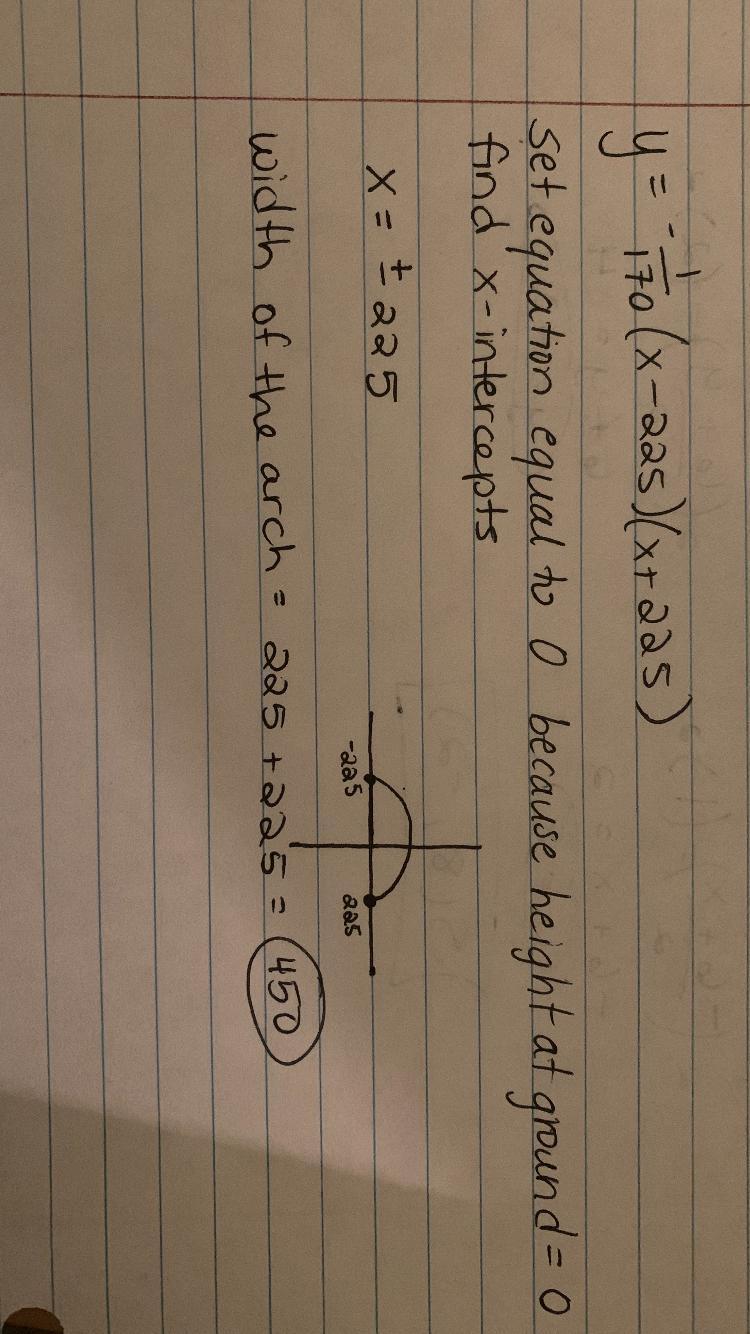 y = -1/170 (x-225)(x+225)
Set equation equal to 0 because height at ground = 0
find x-intercepts
x = ± 225
-225 225
width of the arch = 225 + 225 = 450